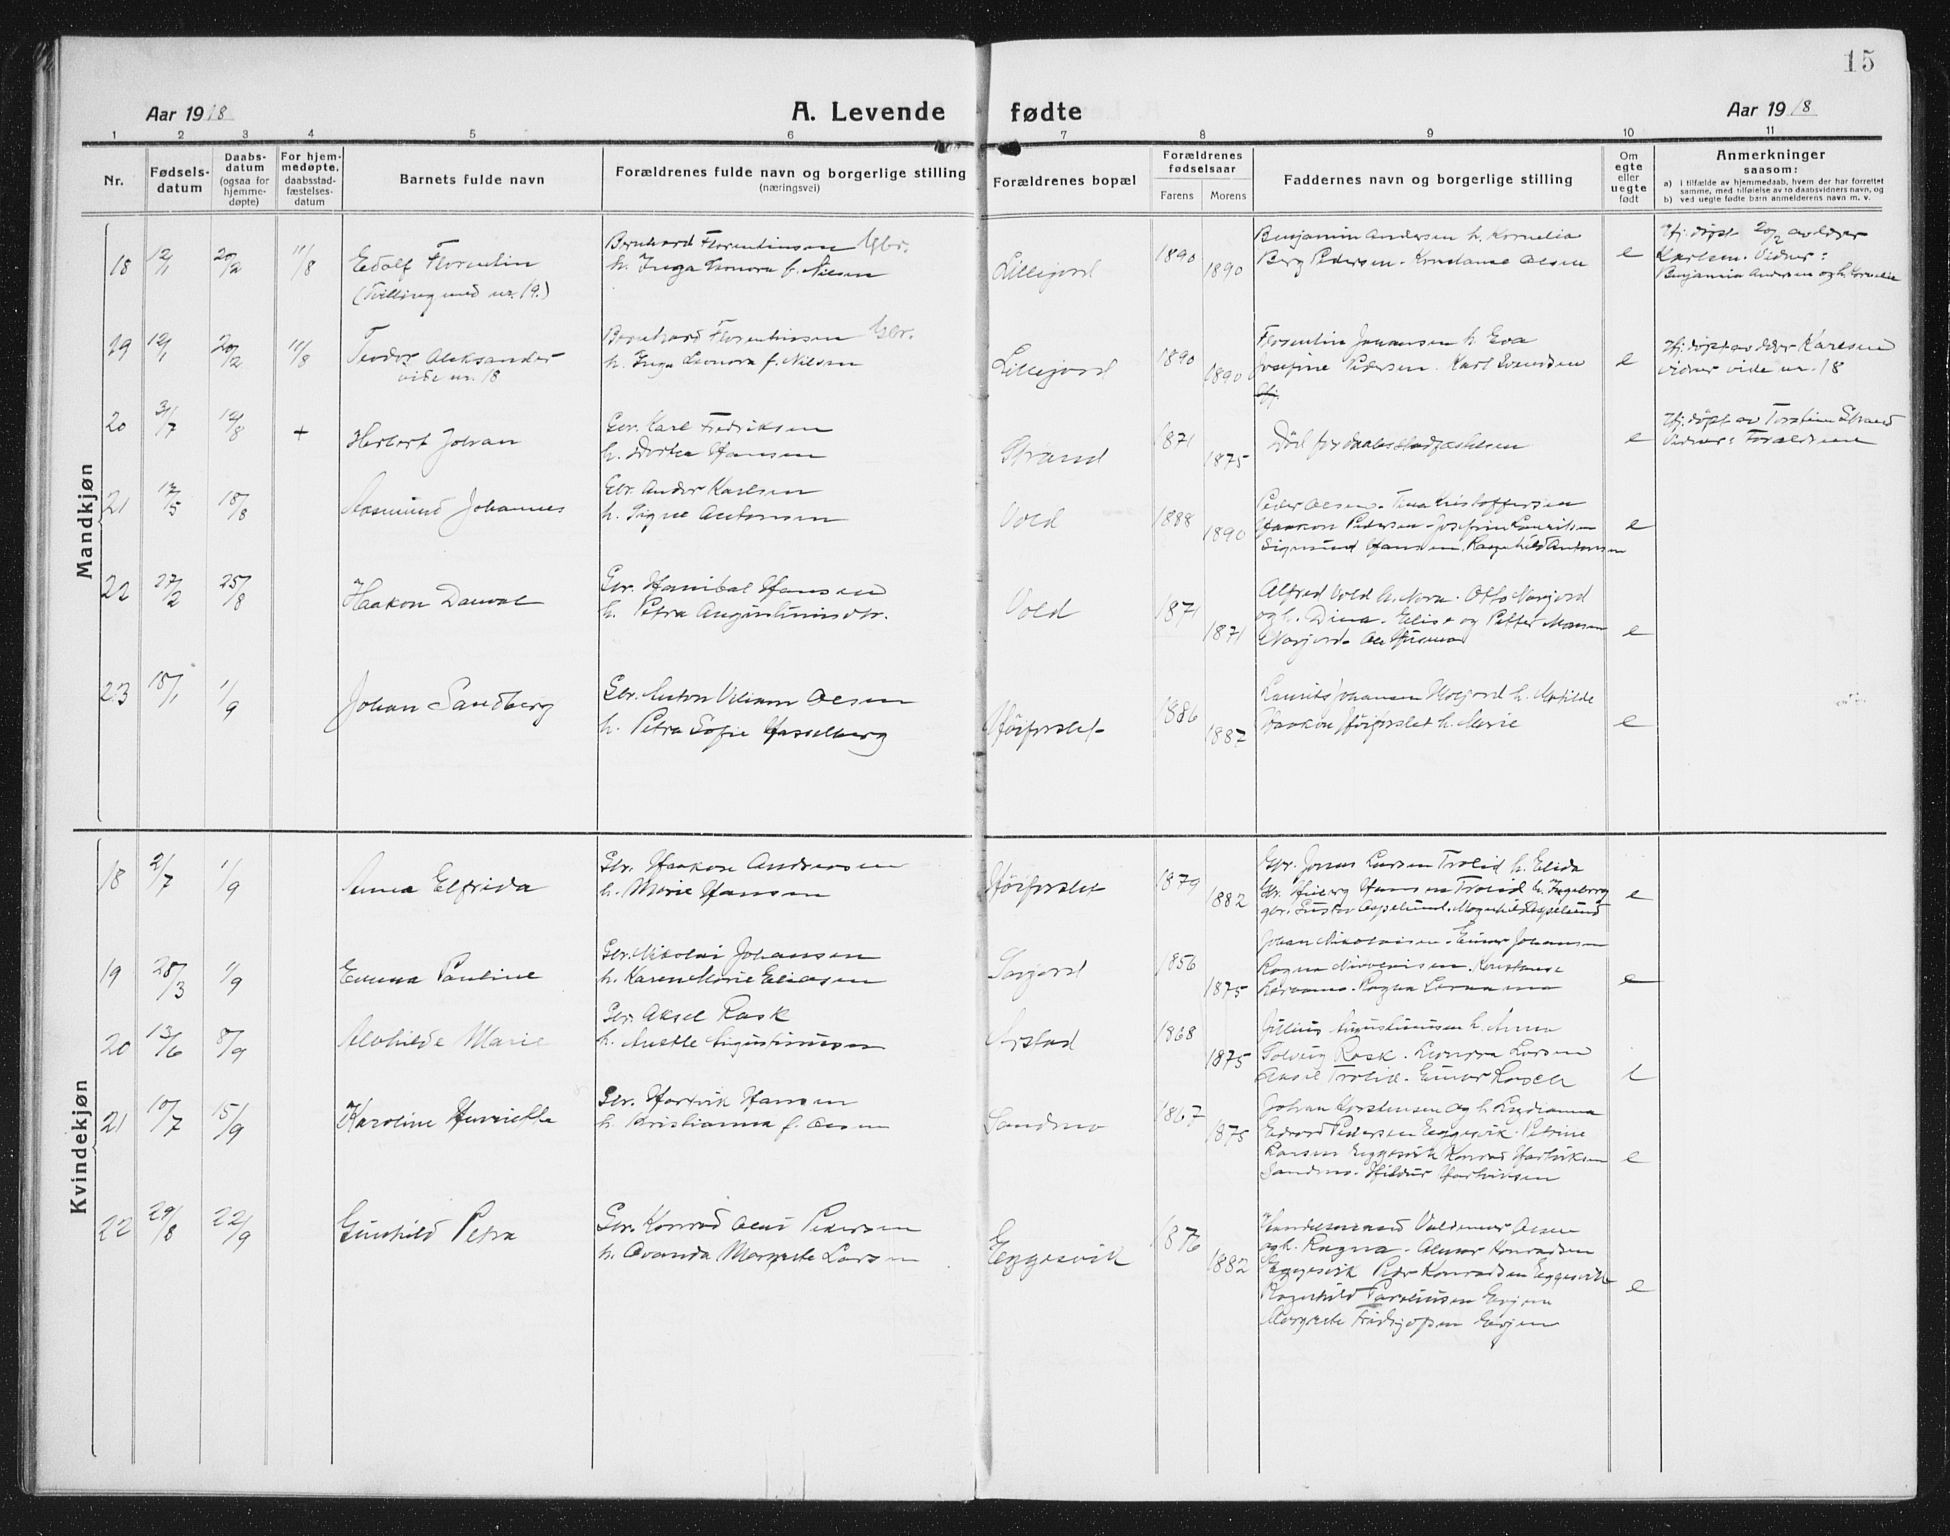 15
Aar 1918
A. Levende fødte
Aar 1918
1 2 3 4 5 6 7 8 9 10 11
Nr.
Fødsels-
datum
Daabs-
datum
(ogsaa for
hjemme-
døpte)
For hjem-
medøpte,
daabsstad-
fæstelses-
datum
Barnets fulde navn
Forældrenes fulde navn og borgerlige stilling
(næringsvei)
Forældrenes bopæl
Forældrenes
fødselsaar
Farens Morens
Faddernes navn og borgerlige stilling
Om
egte
eller
uegte
født
Anmerkninger
saasom:
a) i tilfælde av hjemmedaab, hvem der har forrettet
samme, med tilføielse av to daabsvidners navn, og
b) ved uegte fødte barn anmelderens navn m. v.
Mandkjøn
18 12/1 20/2 11/8
Edolf Florentin
(Tvilling med nr. 19.)
Bernhard Florentinsen Gbr.
h. Inga Leonora f. Nilsen
Lillejord
1890 1890
Benjamin Andersen h. Kornelia
Berg Pedersen. Konstanse Olsen
e
Hj. døpt 20/2 av
Karlsen. Vidner:
Benjamin Andersen og h. Kornelia
19 12/1 20/2 11/8
Teodor Aleksander
vide nr. 18
Bernhard Florentinsen Gbr.
h. Inga Leonora f. Nilsen
Lillejord
1890 1890
Florentin Johansen h. Eva
Josefine Pedersen. Karl Svendsen
e
Hj. døpt av Karlsen
vidner vide nr. 18
20 31/7 12/8 +
Herbert Johan
Gbr. Karl Fredriksen
h. Dortea Hansen
Strand
1871 1875
Død før daabsstadfæstelsen
e
Hj. døpt av Torstein Strand
Vidner: Forældrene
21 17/5 18/8
Aasmund Johannes
Gbr. Andor Karlsen
h. Signe Antonsen
Vold
1888 1890
Peder Olsen. Kristoffersen
Haakon Pedersen. Josefine Lauritsen
Sigmund Hansen. Ragnhild Antonsen
e
22 27/2 25/8
Haakon
Gbr. Hanibal Hansen
h. Petra Augustinusdtr.
Vold
1871 1871
Alfred Vold h. Otto
og h. Dina. Elise og Petter
e
23 15/1 1/9
Johan Sandberg
Gbr. Anton Viliam Olsen
h. Petra Sofie Hasselberg
Høiforslet
1886 1887
Laurits Johansen h. Matilde
Haakon Høiforslet h. Marie
e
Kvindekjøn
18 2/7 1/9
Anna Elfrida
Gbr. Haakon Andreasen
h. Marie Hansen
Høiforslet
1879 1882
Gbr. Jonas Larsen Trolid h. Elida
Gbr. Hansen Trolid h. Ingeborg
gbr. Gustav
e
19 28/3 1/9
Emma Pauline
Gbr. Nikolai Johansen
h. Karen Marie Eliasen
Sørjord
1856 1875
Johan Nikolaisen. Einar Johansen
Ragna Nikolaisen. Konstanse
e
20 13/6 8/9
Mathilde Marie
Gbr. Aksel Rask
h. Anette Augustinussen
Arstad
1868 1875
Julius Augustinussen h. Anna
Solveig Rask. Leonora Larsen
Aksel Trolid. Einar
e
21 10/7 15/9
Karoline Henriette
Gbr. Hartvik Hansen
h. Kristianna f. Olsen
Sandmo
1867 1875
Johan Torstensen og h. Lydianna
Edvard Pedersen Eggesvik. Petrine
Larsen Eggesvik Konrad Hartviksen
Sandmo. Hildur Hartviksen
e
22 29/8 22/9
Gunhild Petra
Gbr. Konrad Pedersen
h. Ovanda Margrete Larsen
Eggesvik
1876 1882
Handelsmand Valdemar Olsen
og h. Ragna. Konradsen
Eggesvik Peder Konradsen Eggesvik
Ragnhild Evjen
Margrete Evjen
e